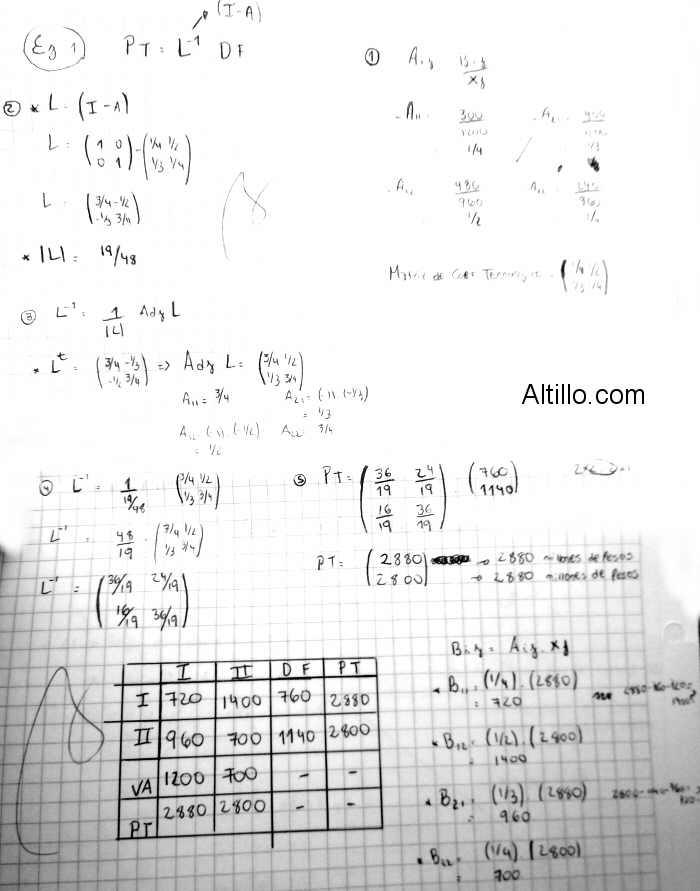 (I-A)
Ej 1 PT = L⁻¹ DF
① Aij
② * L = (I-A)
L = (1 0 / 0 1) - (1/4 1/2 / 1/3 1/4)
L = (3/4 -1/2 / -1/3 3/4)
* |L| = 19/48
A11 300
1/4
480
960
1/2
Matriz de Coef (1/4 1/2 / 1/3 1/4)
③ L⁻¹ = 1/|L| Adj L
* Lᵗ = (3/4 -1/3 / -1/2 3/4) => Adj L = (3/4 1/2 / 1/3 3/4)
A11 = 3/4 A21 = (-1) (-1/3)
= 1/3
A12 (-1) (-1/2) A22 3/4
= 1/2
Altillo.com
④ L⁻¹ = 1/(19/48) (3/4 1/2 / 1/3 3/4)
L⁻¹ = 48/19 · (3/4 1/2 / 1/3 3/4)
L⁻¹ = (36/19 24/19 / 16/19 36/19)
⑤ PT = (36/19 24/19 / 16/19 36/19) · (760 / 1140)
PT = (2880 / 2800)
→ 2880 millones de Pesos
→ 2880 millones de Pesos
I II DF PT
I 720 1400 760 2880
II 960 700 1140 2800
VA 1200 700 - -
PT 2880 2800 - -
Bij = Aij · Xj
* B11 = (1/4) · (2880)
= 720
* B12 = (1/2) · (2800)
= 1400
* B21 = (1/3) · (2880)
= 960
* B22 = (1/4) · (2800)
= 700